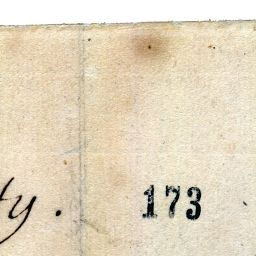 ty. 173